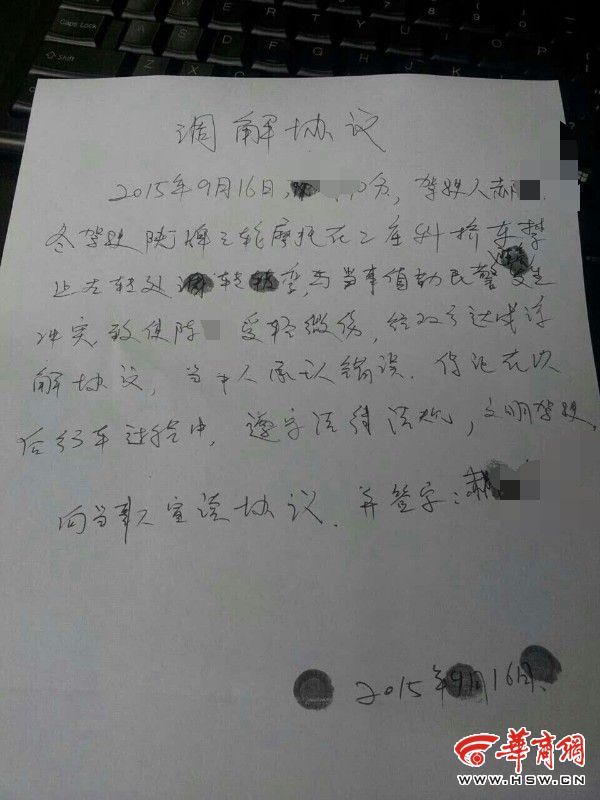 调解协议
2015年9月16日, 0分, 驾驶人郝
冬驾驶陕牌三轮摩托在二府外桥车禁
止左转处 转弯,与当事值勤民警发生
冲突,致使陈 受轻微伤,经双方达成谅
解协议, 当事人承认错误. 保证在以
后行车过程中, 遵守法律法规, 文明驾驶,
向当事人宣读协议. 并签字:郝
2015年9月16日.
华商网
WWW.HSW.CN
Caps Lock
Shift